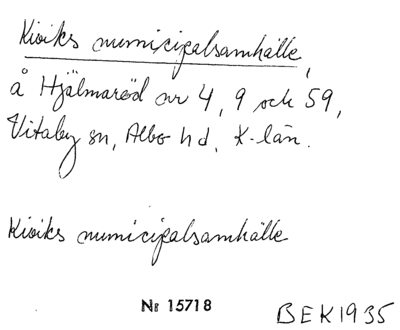 Kiviks municipalsamhälle,
å Hjälmaröd nr 4, 9 och 59,
Vitaby sn, Albo hd, K-län.
Kiviks municipalsamhälle
Nr 15718
BEK1935